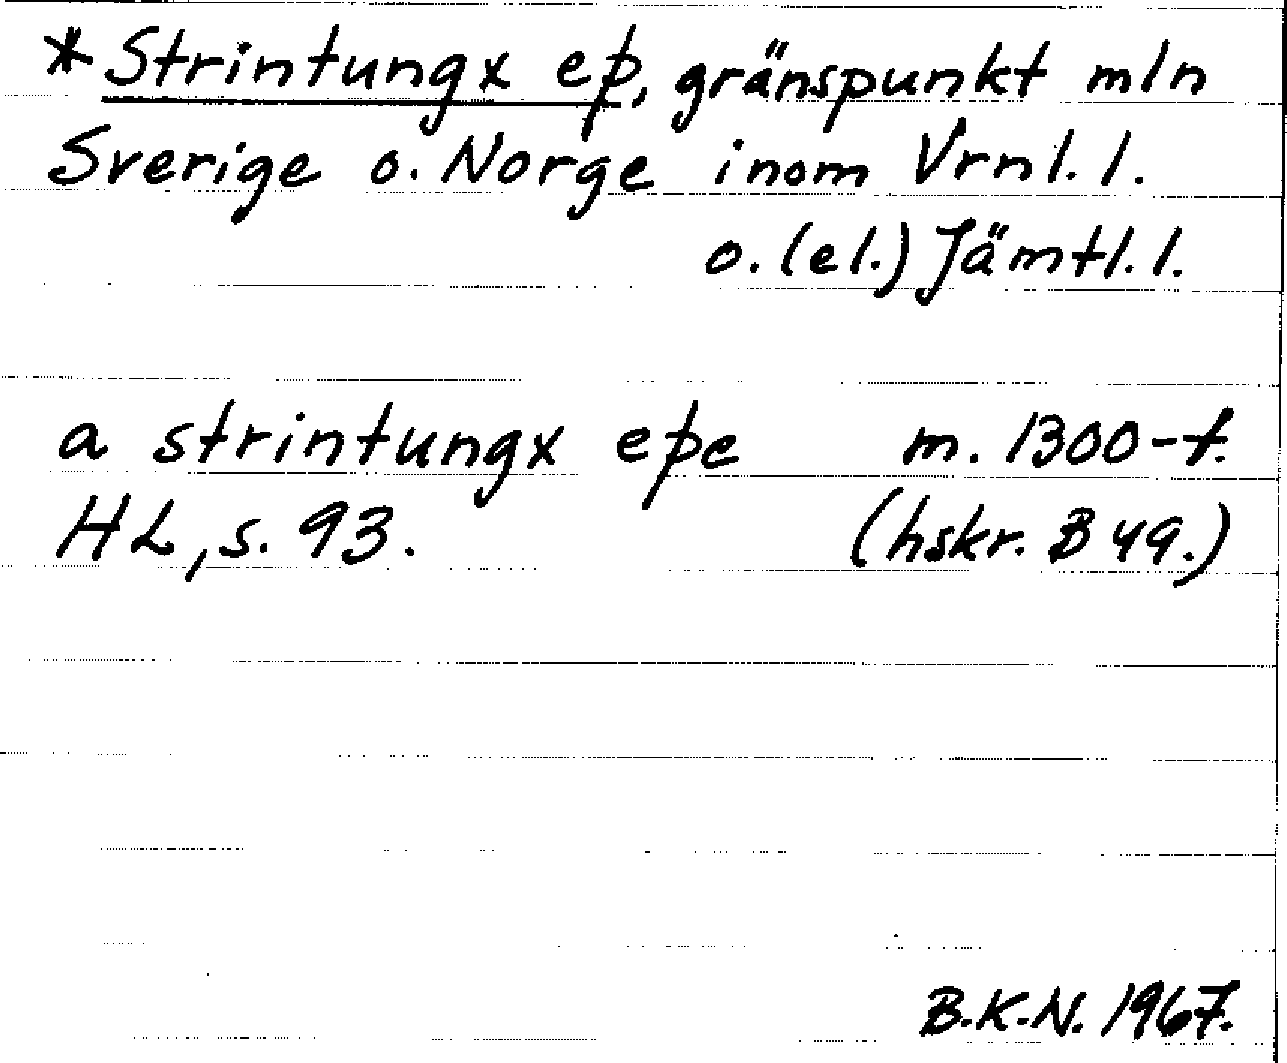 *Strintungx eþ, gränspunkt mln
Sverige o. Norge inom Vrnl. l.
o. (el.) Jämtl. l.
a strintungx eþe m. 1300-t.
HL, s. 93. (hskr. B 49.)
B.K.N. 1967.